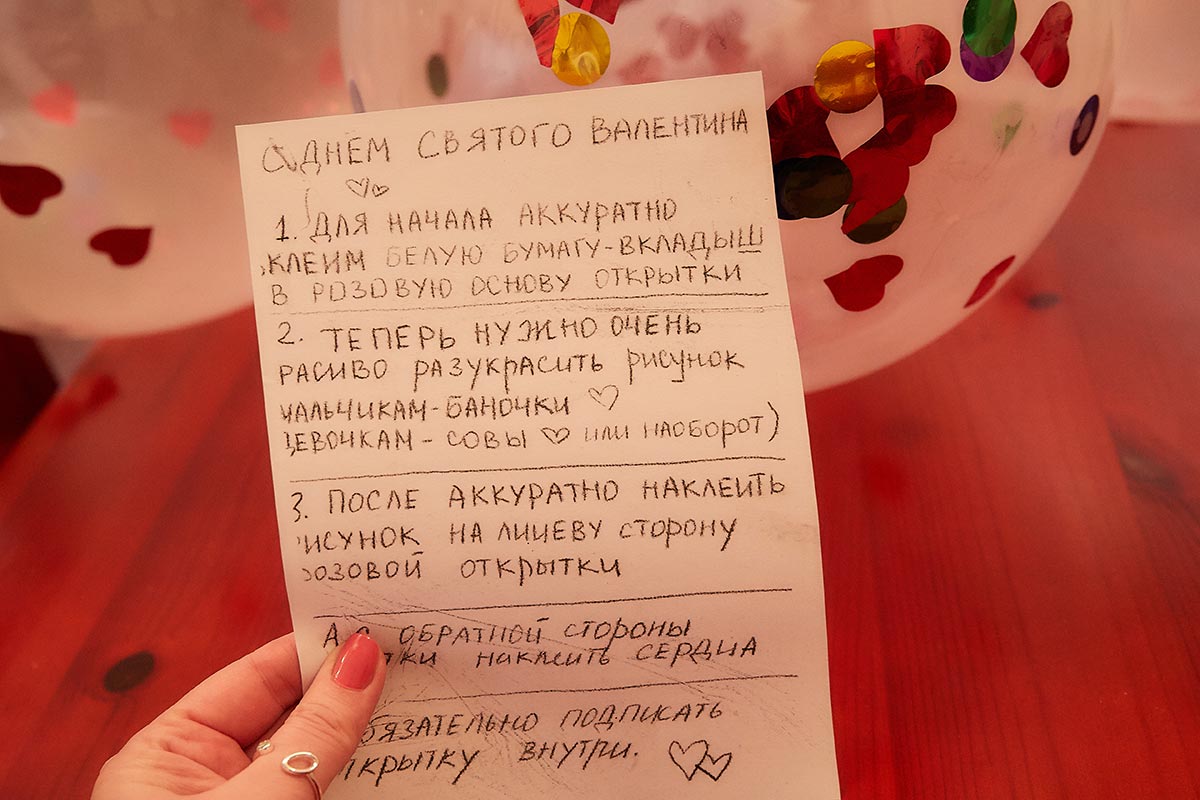 С ДНЁМ СВЯТОГО ВАЛЕНТИНА
1. ДЛЯ НАЧАЛА АККУРАТНО
КЛЕИМ БЕЛУЮ БУМАГУ-ВКЛАДЫШ
В РОЗОВУЮ ОСНОВУ ОТКРЫТКИ
2. ТЕПЕРЬ НУЖНО ОЧЕНЬ
РАСИВО РАЗУКРАСИТЬ РИСУНОК
МАЛЬЧИКАМ-БАНОЧКИ
ДЕВОЧКАМ - СОВЫ ИЛИ НАОБОРОТ)
3. ПОСЛЕ АККУРАТНО НАКЛЕИТЬ
ИСУНОК НА ЛИЦЕВУ СТОРОНУ
ОЗОВОЙ ОТКРЫТКИ
А С ОБРАТНОЙ СТОРОНЫ
ТКИ НАКЛЕИТЬ СЕРДЦА
БЯЗАТЕЛЬНО ПОДПИСАТЬ
ТКРЫТКУ ВНУТРИ.